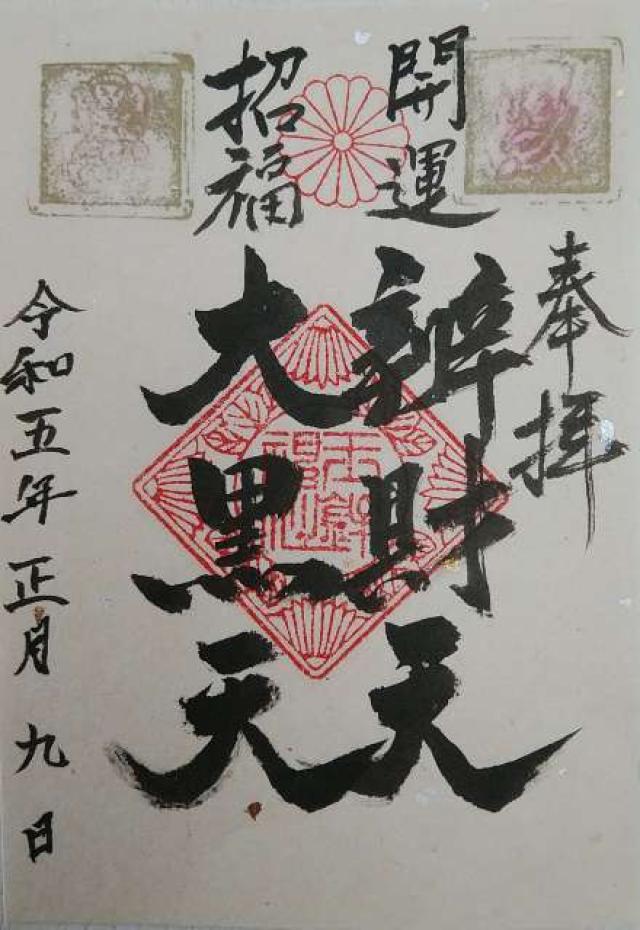 奉拝
開運
招福
辨財天
大黒天
令和五年正月九日